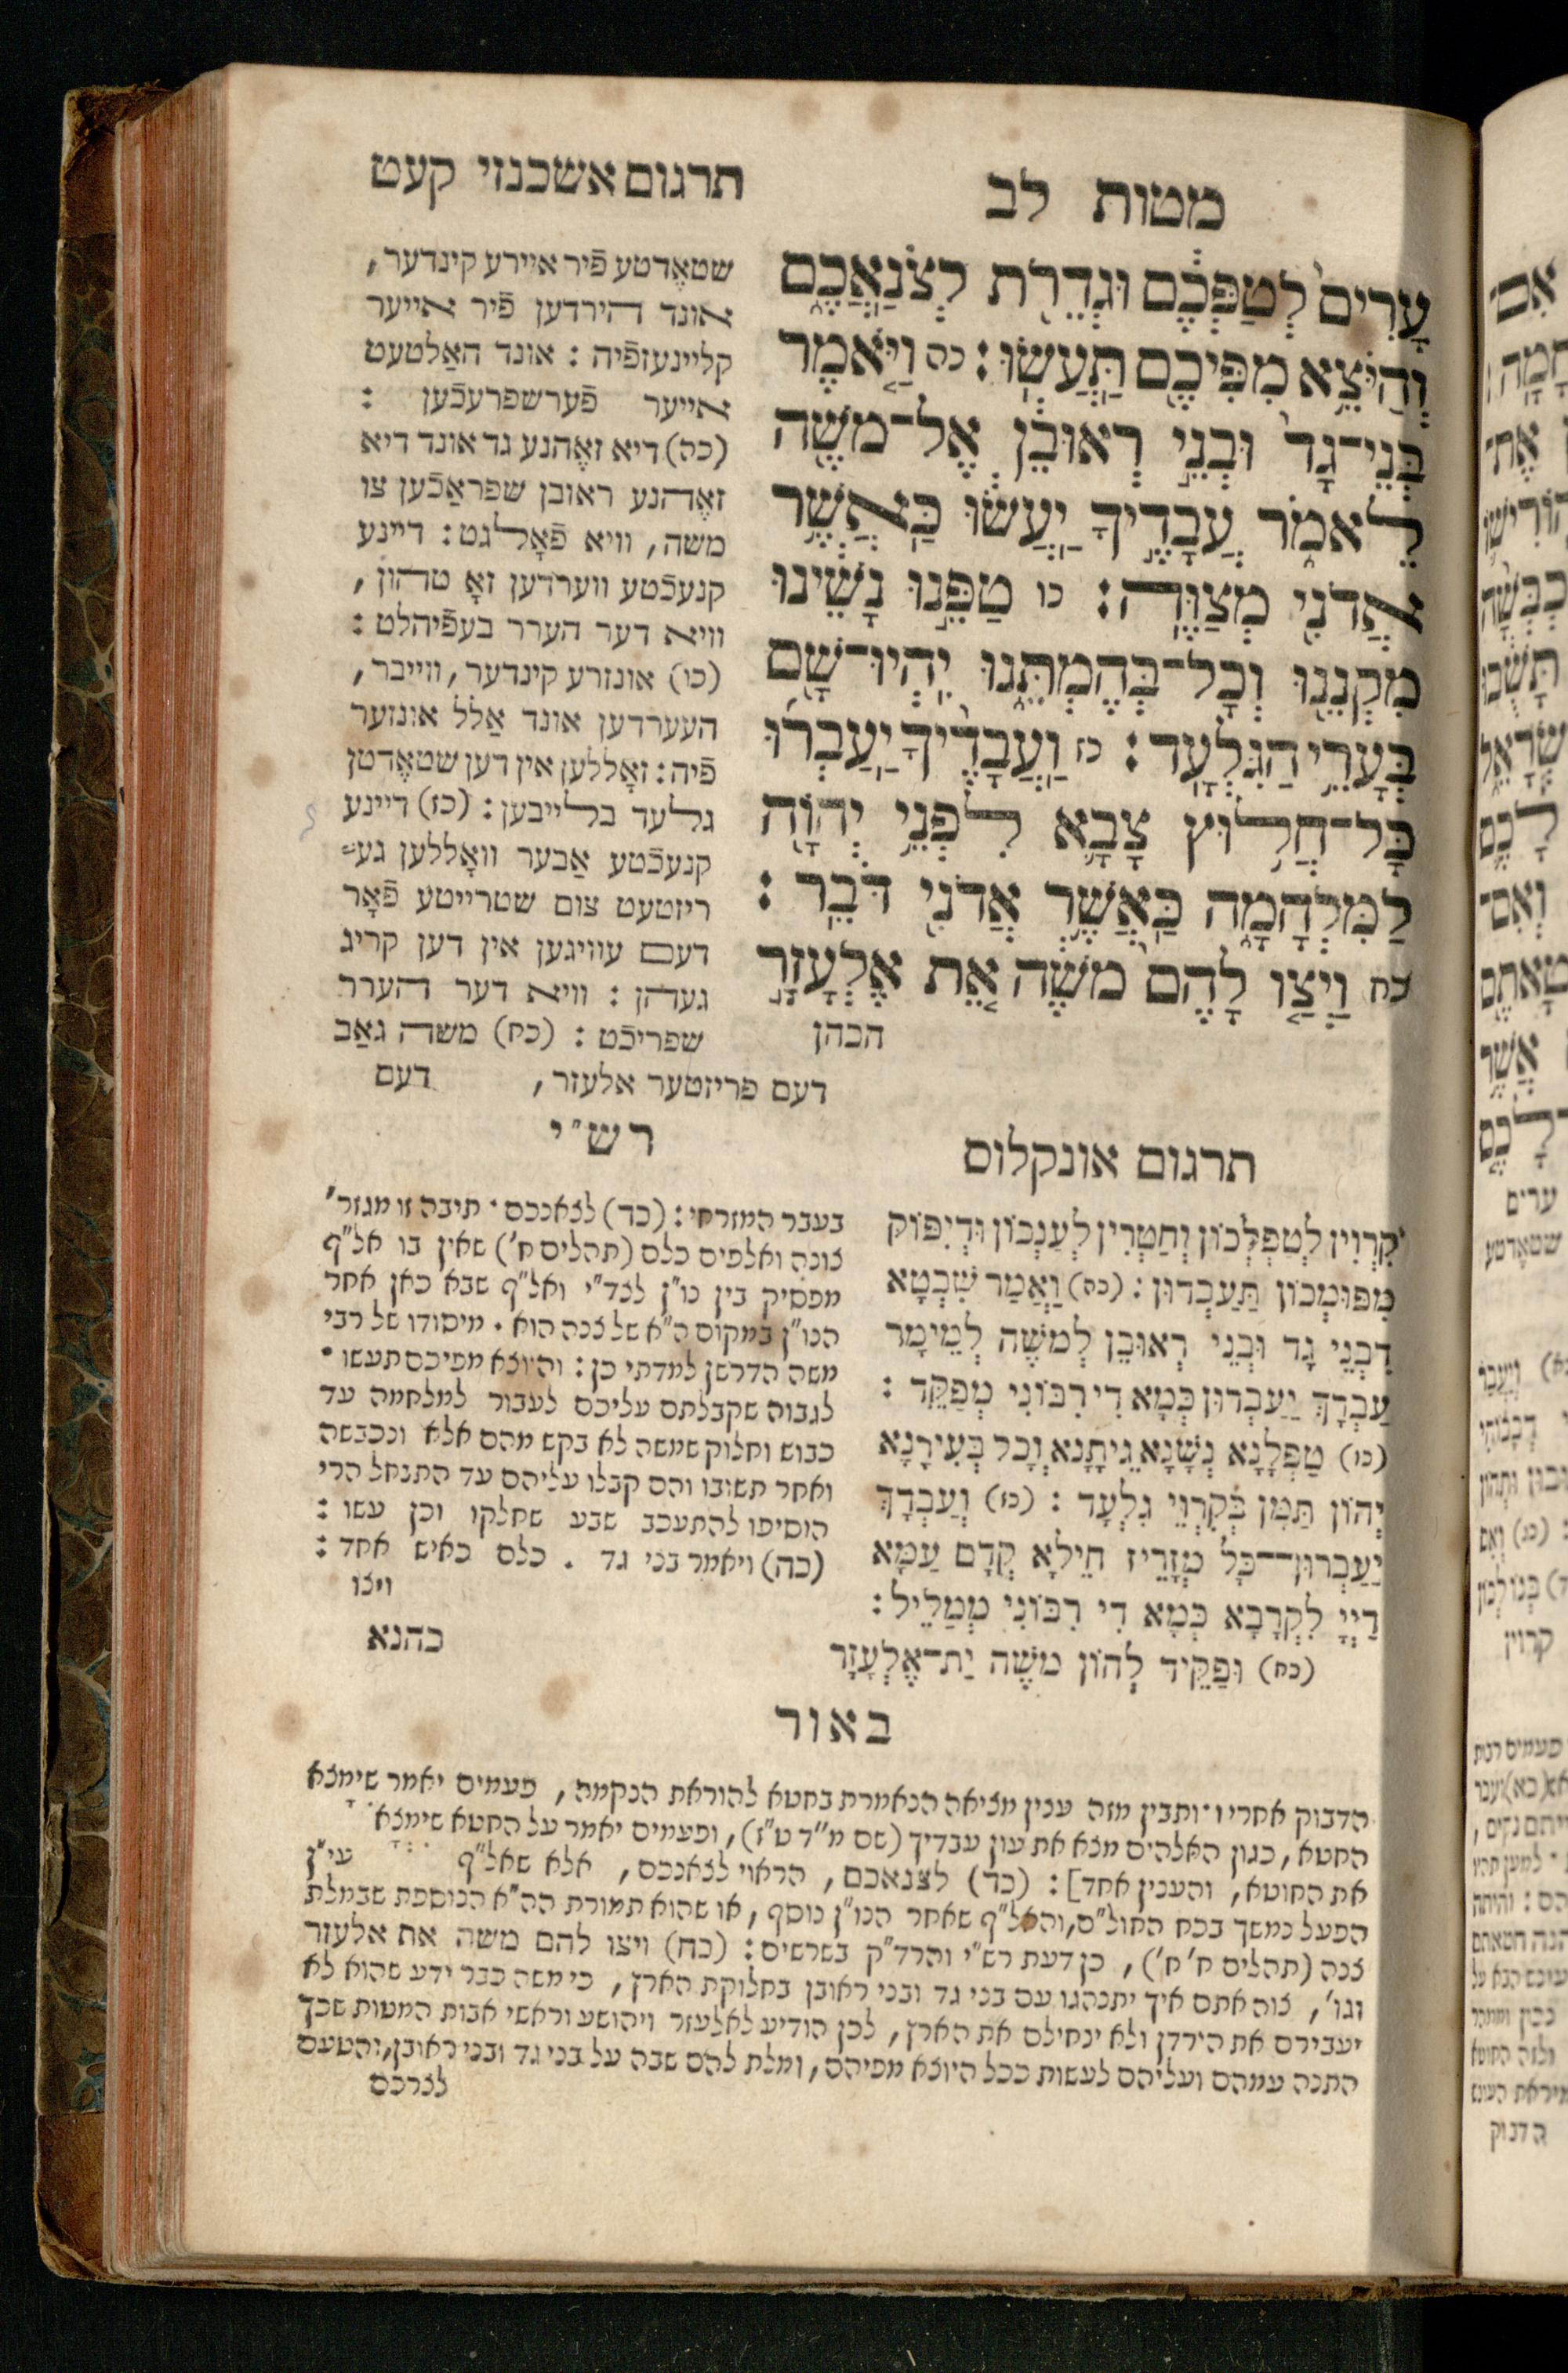 מטות לב
עָרִים֙ לְטַפְּכֶ֔ם וּגְדֵרֹ֖ת לְצֹנַאֲכֶ֑ם
וְהַיֹּצֵ֥א מִפִּיכֶ֖ם תַּעֲשֽׂוּ׃ כה וַיֹּ֤אמֶר
בְּנֵי־גָד֙ וּבְנֵ֣י רְאוּבֵ֔ן אֶל־מֹשֶׁ֖ה
לֵאמֹ֑ר עֲבָדֶ֣יךָ יַעֲשׂ֔וּ כַּאֲשֶׁ֥ר
אֲדֹנִ֖י מְצַוֶּֽה׃ כו טַפֵּ֣נוּ נָשֵׁ֔ינוּ
מִקְנֵ֖נוּ וְכָל־בְּהֶמְתֵּ֑נוּ יִֽהְיוּ־שָׁ֖ם
בְּעָרֵ֥י הַגִּלְעָֽד׃ כז וַעֲבָדֶ֨יךָ יַֽעַבְר֜וּ
כָּל־חֲל֥וּץ צָבָ֛א לִפְנֵ֥י יְהוָֹ֖ה
לַמִּלְחָמָ֑ה כַּאֲשֶׁ֥ר אֲדֹנִ֖י דֹּבֵֽר׃
כח וַיְצַ֤ו לָהֶם֙ מֹשֶׁ֔ה אֵ֚ת אֶלְעָזָ֣ר
הכהן
תרגום אשכנזי קעט
שטאֶדטע פֿיר אייערע קינדער,
אונד הירדען פֿיר אייער
קליינעזפֿיה: אונד האַלטעט
אייער פֿערשפרעכֿען:
(כה) דיא זאֶהנע גד אונד דיא
זאֶהנע ראובן שפראַכֿען צו
משה, וויא פֿאָלגט: דיינע
קנעכֿטע ווערדען זאָ טהון,
וויא דער הערר בעפֿיהלט:
(כו) אונזרע קינדער, ווייבר,
העערדען אונד אַלל אונזער
פֿיה: זאָללען אין דען שטאֶדטן
גלעד בלייבען: (כז) דיינע
קנעכֿטע אַבער וואָללען גע־
ריזטעט צום שטרייטע פֿאָר
דעם עוויגען אין דען קריג
געהן: וויא דער הערר
שפריכֿט: (כח) משה גאַב
דעם פריזטער אלעזר, דעם
תרגום אונקלוס
קִרְוִין לְטַפְלְכוֹן וְחַטְרִין לְעַנְכוֹן וּדְיִפּוֹק
מִפּוּמְכוֹן תַּעַבְדוּן: (כה) וַאֲמַר שִׁבְטָא
דִבְנֵי גָד וּבְנֵי רְאוּבֵן לְמשֶׁה לְמֵימָר
עַבְדָךְ יַעַבְדוּן כְּמָא דִי רִבּוֹנִי מְפַקֵּד:
(כו) טַפְלָנָא נְשָׁנָא גֵיתָנָא וְכָל בְּעִירָנָא
יְהוֹן תַּמָּן בְּקִרְוֵי גִלְעָד: (כז) וְעַבְדָךְ
יַעַבְרוּן־־כָּל מְזָרֵיז חֵילָא קֳדָם עַמָּא
דַיְיָ לִקְרָבָא כְּמָא דִי רִבּוֹנִי מְמַלֵּיל:
(כח) וּפַקֵּיד לְהוֹן משֶׁה יַת־אֶלְעָזָר
כהנא
רש״י
בעבר המזרחי: (כד) לצאנכם · תיבה זו מגזר'
צונה ואלפים כלם (תהלים ח') שאין בו אל״ף
מפסיק בין נו״ן לצד״י ואל״ף שבא כאן אחר
הנו״ן במקום ה״א של צנה הוא. מיסודו של רבי
משה הדרשן למדתי כן: והיוצא מפיכם תעשו ·
לגבוה שקבלתם עליכם לעבור למלחמה עד
כבוש וחלוק שמשה לא בקש מהם אלא ונכבשה
ואחר תשובו והם קבלו עליהם עד התנחל הרי
הוסיפו להתעכב שבע שחלקו וכן עשו:
(כה) ויאמר בני גד. כלם כאיש אחד:
ויצו
באור
הדבוק אחריו · ותבין מזה ענין מציאה הנאמרת בחטא להוראת הנקמה, פעמים יאמר שימצא
החטא, כגון האלהים מצא את עון עבדיך (שם מ״ד ט״ז), ופעמים יאמר על החטא שימצא
את החוטא, והענין אחד]: (כד) לצנאכם, הראוי לצאנכם, אלא שאל״ף עי״ן
הפעל נמשך בכח החול״ם, והאל״ף שאחר הנו״ן נוסף, או שהוא תמורת הה״א הנוספת שבמלת
צנה (תהלים ח' ח'), כן דעת רש״י והרד״ק בשרשים: (כח) ויצו להם משה את אלעזר
וגו', צוה אתם איך יתנהגו עם בני גד ובני ראובן בחלוקת הארץ, כי משה כבר ידע שהוא לא
יעבירם את הירדן ולא ינחילם את הארץ, לכן הודיע לאלעזר ויהושע וראשי אבות המטות שכך
התנה עמהם ועליהם לעשות ככל היוצא מפיהם, ומלת להם שבה על בני גד ובני ראובן, והטעם
לצרכם